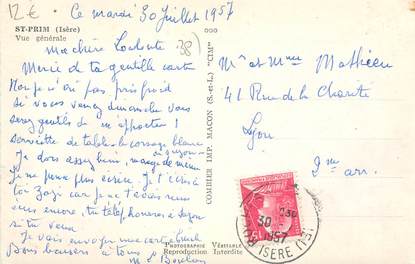 12€
Ce mardi 30 juillet 1957
ST-PRIM (Isère)
Vue générale
38)
Ma chère
Merci de ta gentille carte
Non je n'ai pas pris froid
si vous venez dimanche vous
serez gentils de m'apporter 1
serviette de table le corsage blanc
Je dors assez bien, mange de même
Je ne peux plus écrire. Je t'écris
car je ne t'avais rien
encore, tu téléphoneras à
si tu veux
Je vais envoyer une carte
Bons baisers à tous
COMBIER IMP. MACON (S.-et-L.) "CIM"
Mr et Mme Mathieu
41 Rue de la Charité
Lyon
2me arr.
30
1957
ISERE
PHOTOGRAPHIE VÉRITABLE
Reproduction Interdite